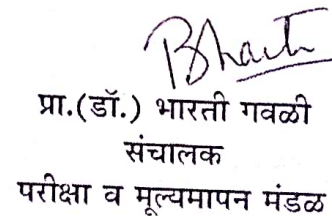 Bharti
प्रा.(डॉ.) भारती गवळी
संचालक
परीक्षा व मूल्यमापन मंडळ